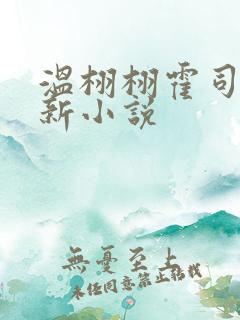 温栩栩霍司
新小说
無憂至上
未经同意禁止转载